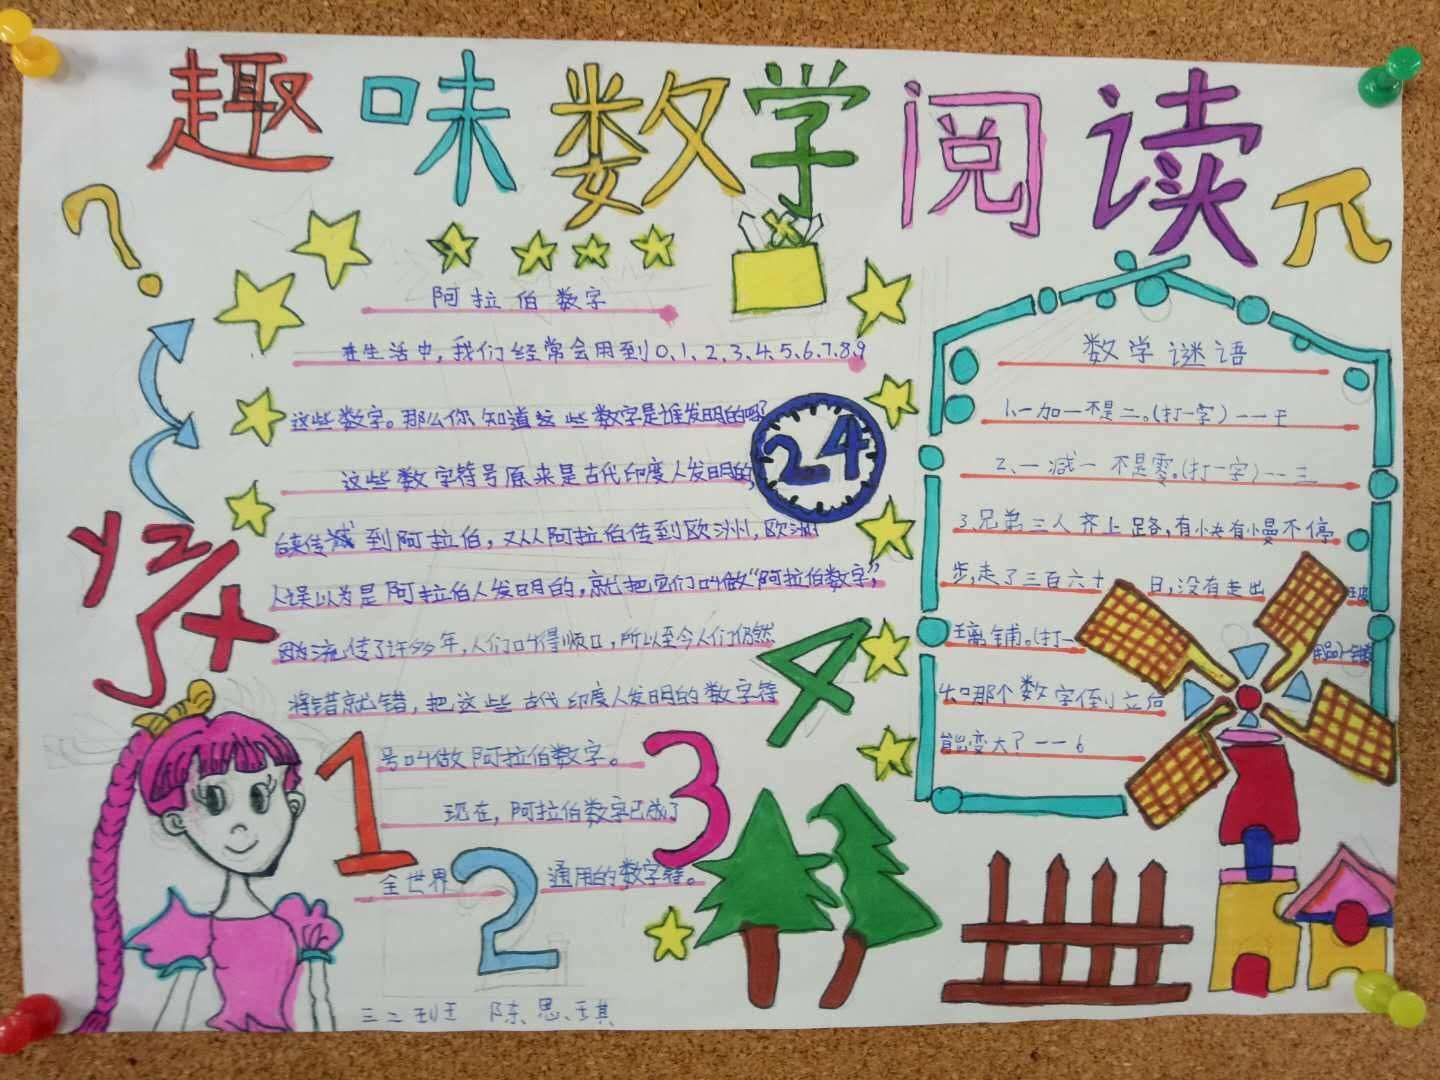 趣味数学阅读
?
π
阿拉伯数字
在生活中,我们经常会用到0、1、2、3、4、5、6、7、8、9
这些数字。那么你知道这些数字是谁发明的吗?
这些数字符号原来是古代印度人发明的,
后来传到阿拉伯,又从阿拉伯传到欧洲,欧洲
人误以为是阿拉伯人发明的,就把它们叫做“阿拉伯数字”,
因为流传了许多年,人们叫得顺口,所以至今人们仍然
将错就错,把这些古代印度人发明的数字符
号叫做阿拉伯数字。
现在,阿拉伯数字已成了
全世界通用的数字符。
24
y
2
√x
1
2
3
4
三二班 陈思琪
数学谜语
1、一加一不是二。(打一字)——王
2、一减一不是零。(打一字)——三
3、兄弟三人齐上路,有快有慢不停
步,走了三百六十 日,没有走出
璃铺。(打一
4、0那个数字倒立后
能变大?——6